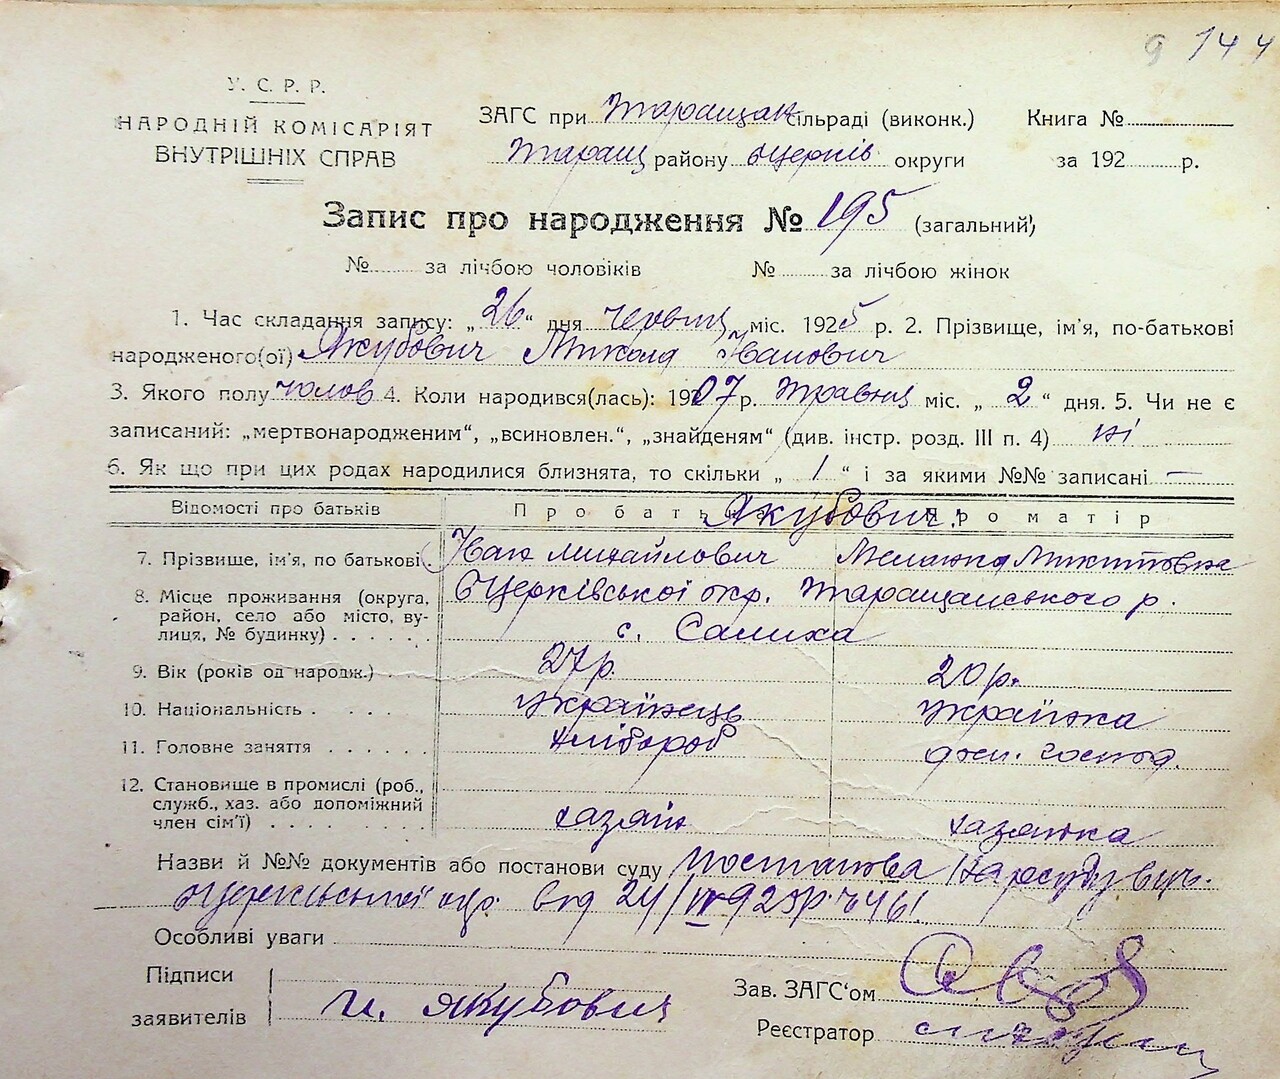 9 144
У. С. Р. Р.
НАРОДНІЙ КОМІСАРІЯТ
ВНУТРІШНІХ СПРАВ
ЗАГС при Таращан сільраді (виконк.) Книга №
Таращ району Бцерків округи за 192 р.
Запис про народження № 195 (загальний)
№ за лічбою чоловіків № за лічбою жінок
1. Час складання запису: „26“ дня червня міс. 1925 р. 2. Прізвище, ім'я, по-батькові
народженого(ої) Якубович Микола Іванович
3. Якого полу чолов 4. Коли народився(лась): 1907 р. травня міс. „2“ дня. 5. Чи не є
записаний: „мертвонародженим“, „всиновлен.“, „знайденям“ (див. інстр. розд. III п. 4) ні
6. Як що при цих родах народилися близнята, то скільки „1“ і за якими №№ записані —
Відомості про батьків Про батька Про матір
Якубович
7. Прізвище, ім'я, по батькові Іван Михайлович Меланка Микитовна
8. Місце проживання (округа, район, село або місто, вулиця, № будинку) БЦерківської окр. Таращанського р.
с. Салиха
9. Вік (років од народж.) 27 р. 20 р.
10. Національність Українець Українка
11. Головне заняття хлібороб дом. господ.
12. Становище в промислі (роб., служб., хаз. або допоміжний член сім'ї) хазяїн хазяйка
Назви й №№ документів або постанови суду Постанова Нарсуду
Бцерківської окр. від 24/IV 925р. № 461
Особливі уваги
Підписи
заявителів И. Якубович
Зав. ЗАГС‘ом
Реєстратор